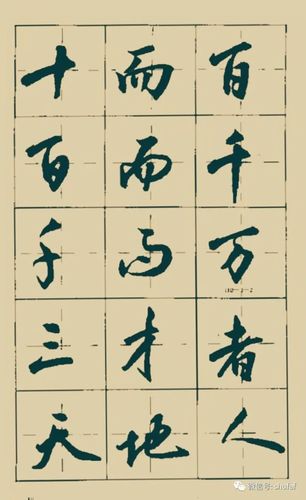 十而百
百而千
千而万
三才者
天地人
微信号: